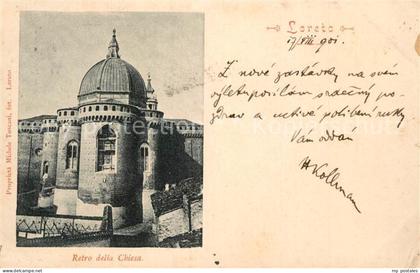 Loreto
17/VIII 901.
Z nové zastávky na svém
výletu posílám srdečný po-
zdrav a uctivé políbení ruky
Vám oddan
H Kollmann
Proprietà Michele Toscani, fot. Loreto
Retro della Chiesa.